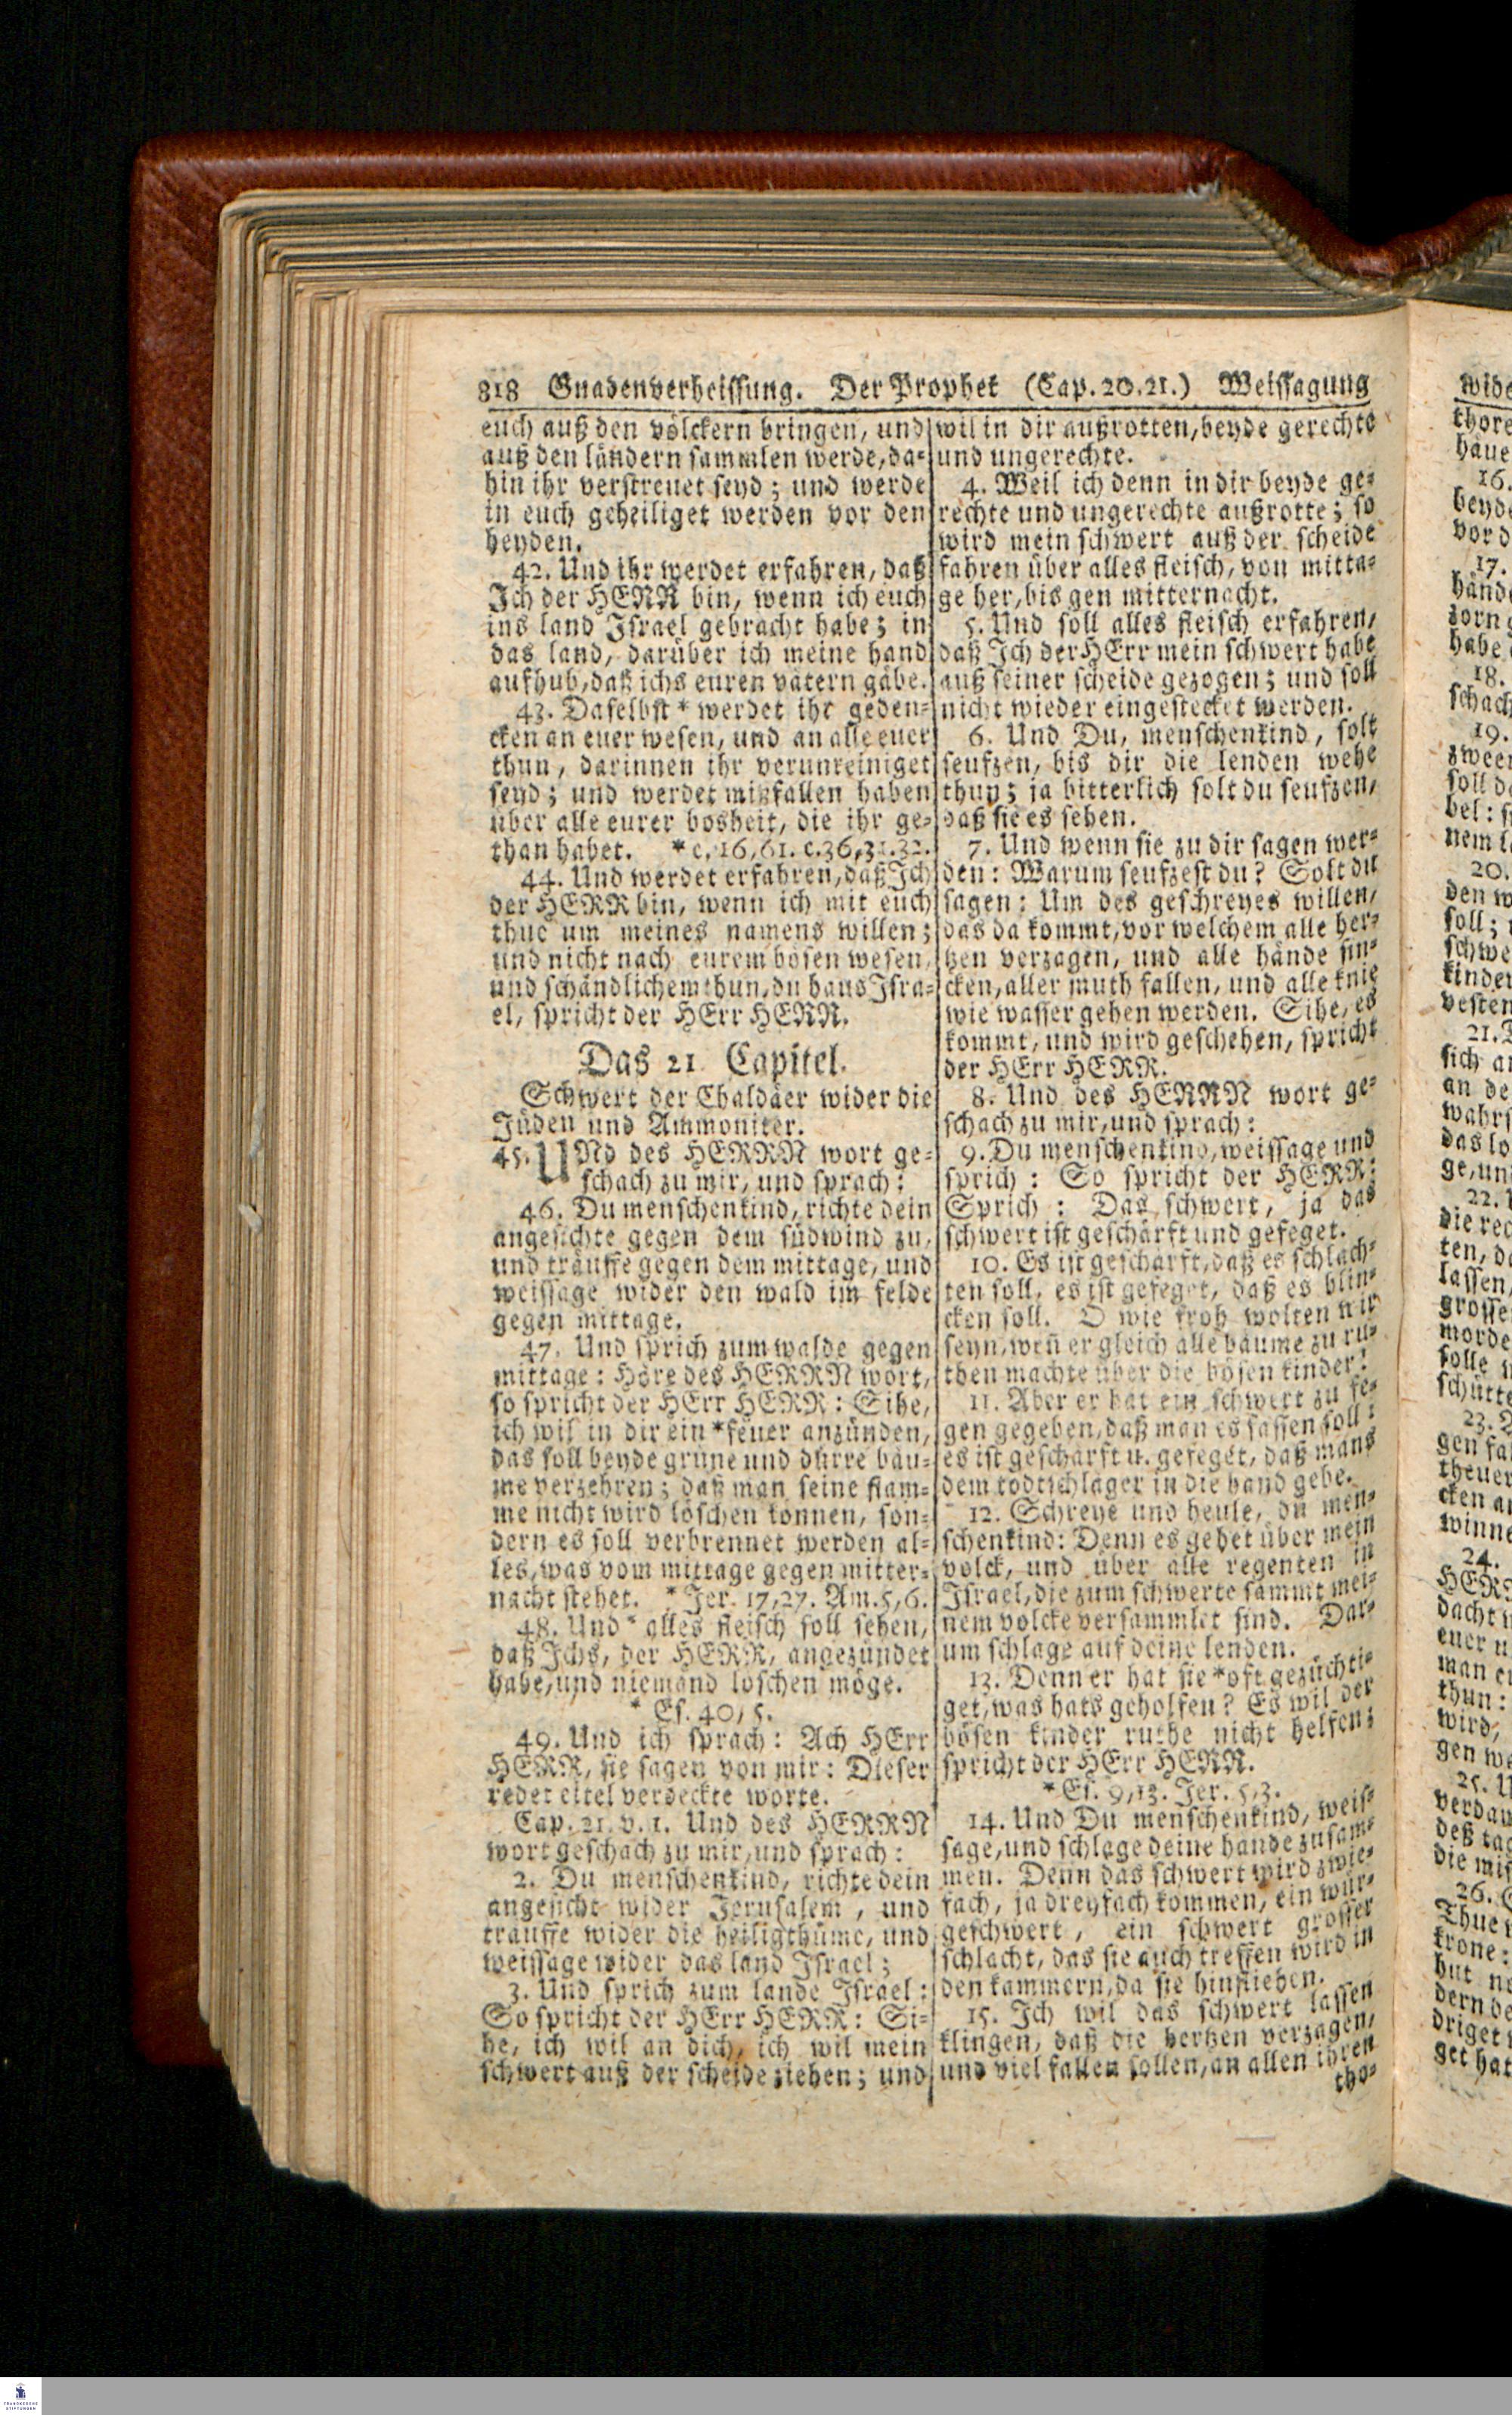 818 Gnadenverheissung. Der Prophet (Cap. 20. 21.) Weissagung
euch auß den völckern bringen, und
auß den ländern sammlen werde, da-
hin ihr verstreuet seyd; und werde
in euch geheiliget werden vor den
heyden.
42. Und ihr werdet erfahren, daß
Ich der HERR bin, wenn ich euch
ins land Israel gebracht habe; in
das land, darüber ich meine hand
aufhub, daß ichs euren vätern gäbe.
43. Daselbst * werdet ihr geden-
cken an euer wesen, und an alle euer
thun, darinnen ihr verunreiniget
seyd; und werdet mißfallen haben
über alle eurer bosheit, die ihr ge-
than habet. * c. 16, 61. c. 36, 31. 32.
44. Und werdet erfahren, daß Ich
der HERR bin, wenn ich mit euch
thue um meines namens willen;
und nicht nach eurem bösen wesen,
und schändlichem thun, du haus Isra-
el, spricht der HErr HERR.
Das 21 Capitel.
Schwert der Chaldäer wider die
Jüden und Ammoniter.
45. UNd des HERRN wort ge-
schach zu mir, und sprach:
46. Du menschenkind, richte dein
angesichte gegen dem südwind zu,
und träuffe gegen dem mittage, und
weissage wider den wald im felde
gegen mittage.
47. Und sprich zum walde gegen
mittage: Höre des HERRN wort,
so spricht der HErr HERR: Sihe,
ich wil in dir ein * feuer anzünden,
das soll beyde grüne und dürre bäu-
me verzehren; daß man seine flam-
me nicht wird löschen können, son-
dern es soll verbrennet werden al-
les, was vom mittage gegen mitter-
nacht stehet. * Jer. 17, 27. Am. 5, 6.
48. Und * alles fleisch soll sehen,
daß Ichs, der HERR, angezündet
habe, und niemand löschen möge.
* Es. 40, 5.
49. Und ich sprach: Ach HErr
HERR, sie sagen von mir: Dieser
redet eitel verdeckte worte.
Cap. 21. v. 1. Und des HERRN
wort geschach zu mir, und sprach:
2. Du menschenkind, richte dein
angesicht wider Jerusalem, und
träuffe wider die heiligthüme, und
weissage wider das land Israel;
3. Und sprich zum lande Israel:
So spricht der HErr HERR: Si-
he, ich wil an dich, ich wil mein
schwert auß der scheide ziehen; und
wil in dir außrotten, beyde gerechte
und ungerechte.
4. Weil ich denn in dir beyde ge-
rechte und ungerechte außrotte; so
wird mein schwert auß der scheide
fahren über alles fleisch, von mitta-
ge her, bis gen mitternacht.
5. Und soll alles fleisch erfahren,
daß Ich der HErr mein schwert habe
auß seiner scheide gezogen; und soll
nicht wieder eingestecket werden.
6. Und Du, menschenkind, solt
seufzen, bis dir die lenden wehe
thun; ja bitterlich solt du seufzen,
daß sie es sehen.
7. Und wenn sie zu dir sagen wer-
den: Warum seufzest du? Solt du
sagen: Um des geschreyes willen,
das da kommt, vor welchem alle her-
tzen verzagen, und alle hände sin-
cken, aller muth fallen, und alle knie
wie wasser gehen werden. Sihe, es
kommt, und wird geschehen, spricht
der HErr HERR.
8. Und des HERRN wort ge-
schach zu mir, und sprach:
9. Du menschenkind, weissage und
sprich: So spricht der HERR:
Sprich: Das schwert, ja das
schwert ist geschärft und gefeget.
10. Es ist geschärft, daß es schlach-
ten soll, es ist gefeget, daß es blin-
cken soll. O wie froh wolten wir
seyn, weñ er gleich alle bäume zu ru-
then machte über die bösen kinder!
11. Aber er hat ein schwert zu fe-
gen gegeben, daß man es fassen soll:
es ist geschärft u. gefeget, daß mans
dem todtschläger in die hand gebe.
12. Schreye und heule, du men-
schenkind: Denn es gehet über mein
volck, und über alle regenten in
Israel, die zum schwerte sammt mei-
nem volcke versammlet sind. Dar-
um schlage auf deine lenden.
13. Denn er hat sie * oft gezüchti-
get, was hats geholfen? Es wil der
bösen kinder ruthe nicht helfen,
spricht der HErr HERR.
* Es. 9, 13. Jer. 5, 3.
14. Und Du menschenkind, weis-
sage, und schlage deine hände zusam-
men. Denn das schwert wird zwie-
fach, ja dreyfach kommen, ein wür-
geschwert, ein schwert grosser
schlacht, das sie auch treffen wird in
den kammern, da sie hinfliehen.
15. Ich wil das schwert lassen
klingen, daß die hertzen verzagen,
und viel fallen sollen, an allen ihren
tho-